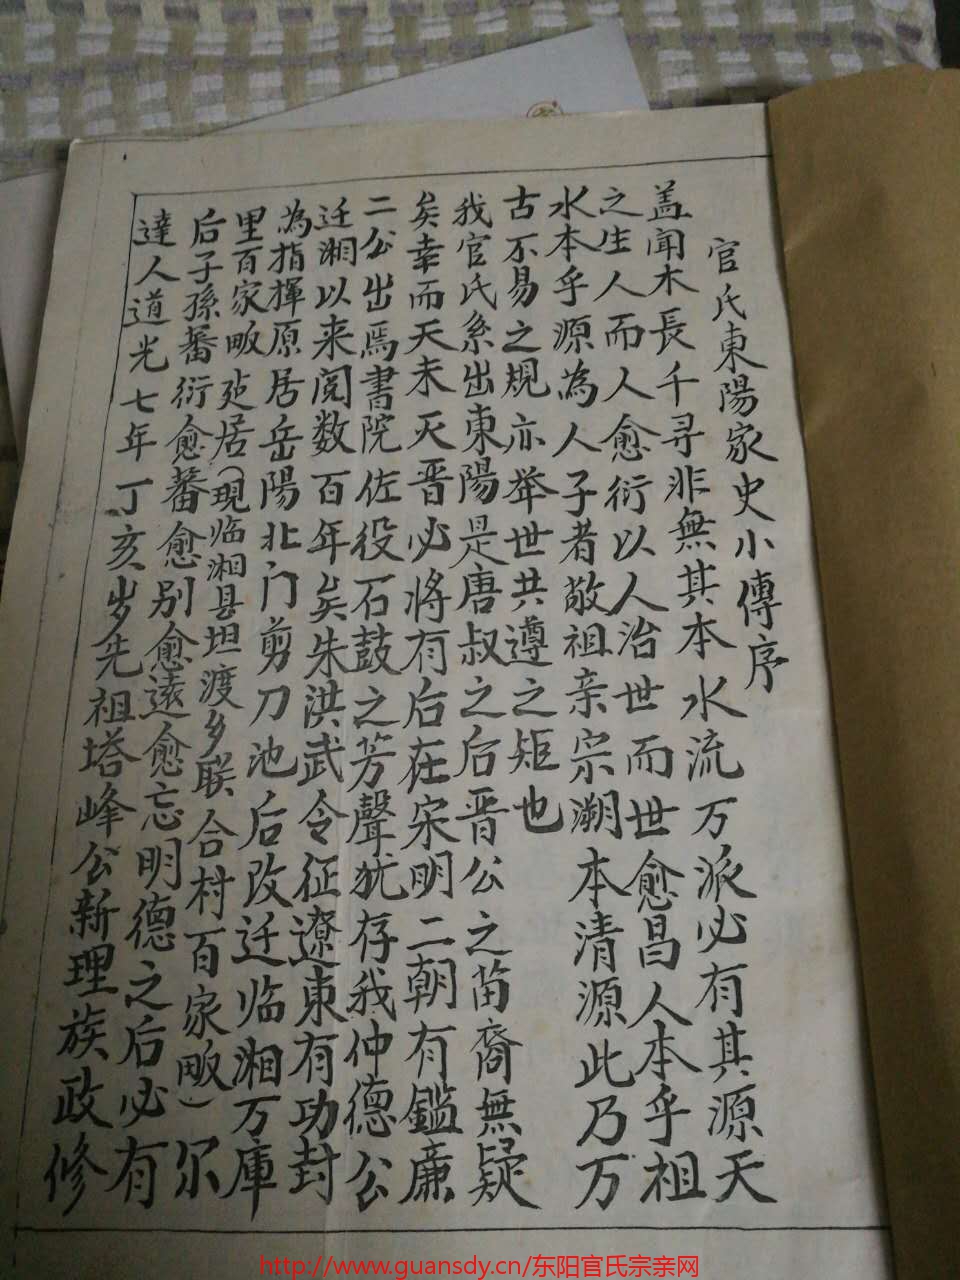 官氏東陽家史小傳序
盖闻木長千寻非無其本水流万派必有其源天
之生人而人愈衍以人治世而世愈昌人本乎祖
水本乎源為人子者敬祖亲宗溯本清源此乃万
古不易之规亦举世共遵之矩也
我官氏系出東陽是唐叔之后晋公之苗裔無疑
矣幸而天未灭晋必将有后在宋明二朝有鑑廉
二公出焉書院佐役石鼓之芳聲犹存我仲德公
迁湘以来阅数百年矣朱洪武令征遼東有功封
為指揮原居岳陽北门剪刀池后改迁临湘万庫
里百家畈 居(現临湘县坦渡乡联合村百家畈)尔
后子孫蕃衍愈蕃愈别愈遠愈忘明德之后必有
達人道光七年丁亥岁先祖塔峰公新理族政修
http://www.guansdy.cn/东阳官氏宗亲网